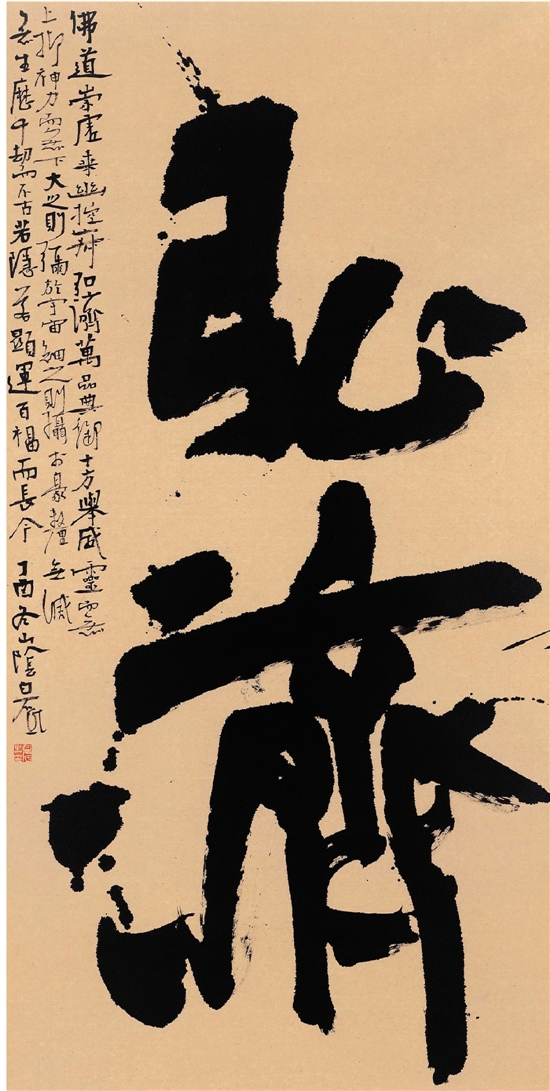 弘濟
佛道崇虛乘幽控寂弘濟萬品典御十方舉威靈而無
上抑神力而無下大之則彌於宇宙細之則攝於豪釐無滅
無生歷千劫而不古若隱若顯運百福而長今 丁酉冬山陰白砥